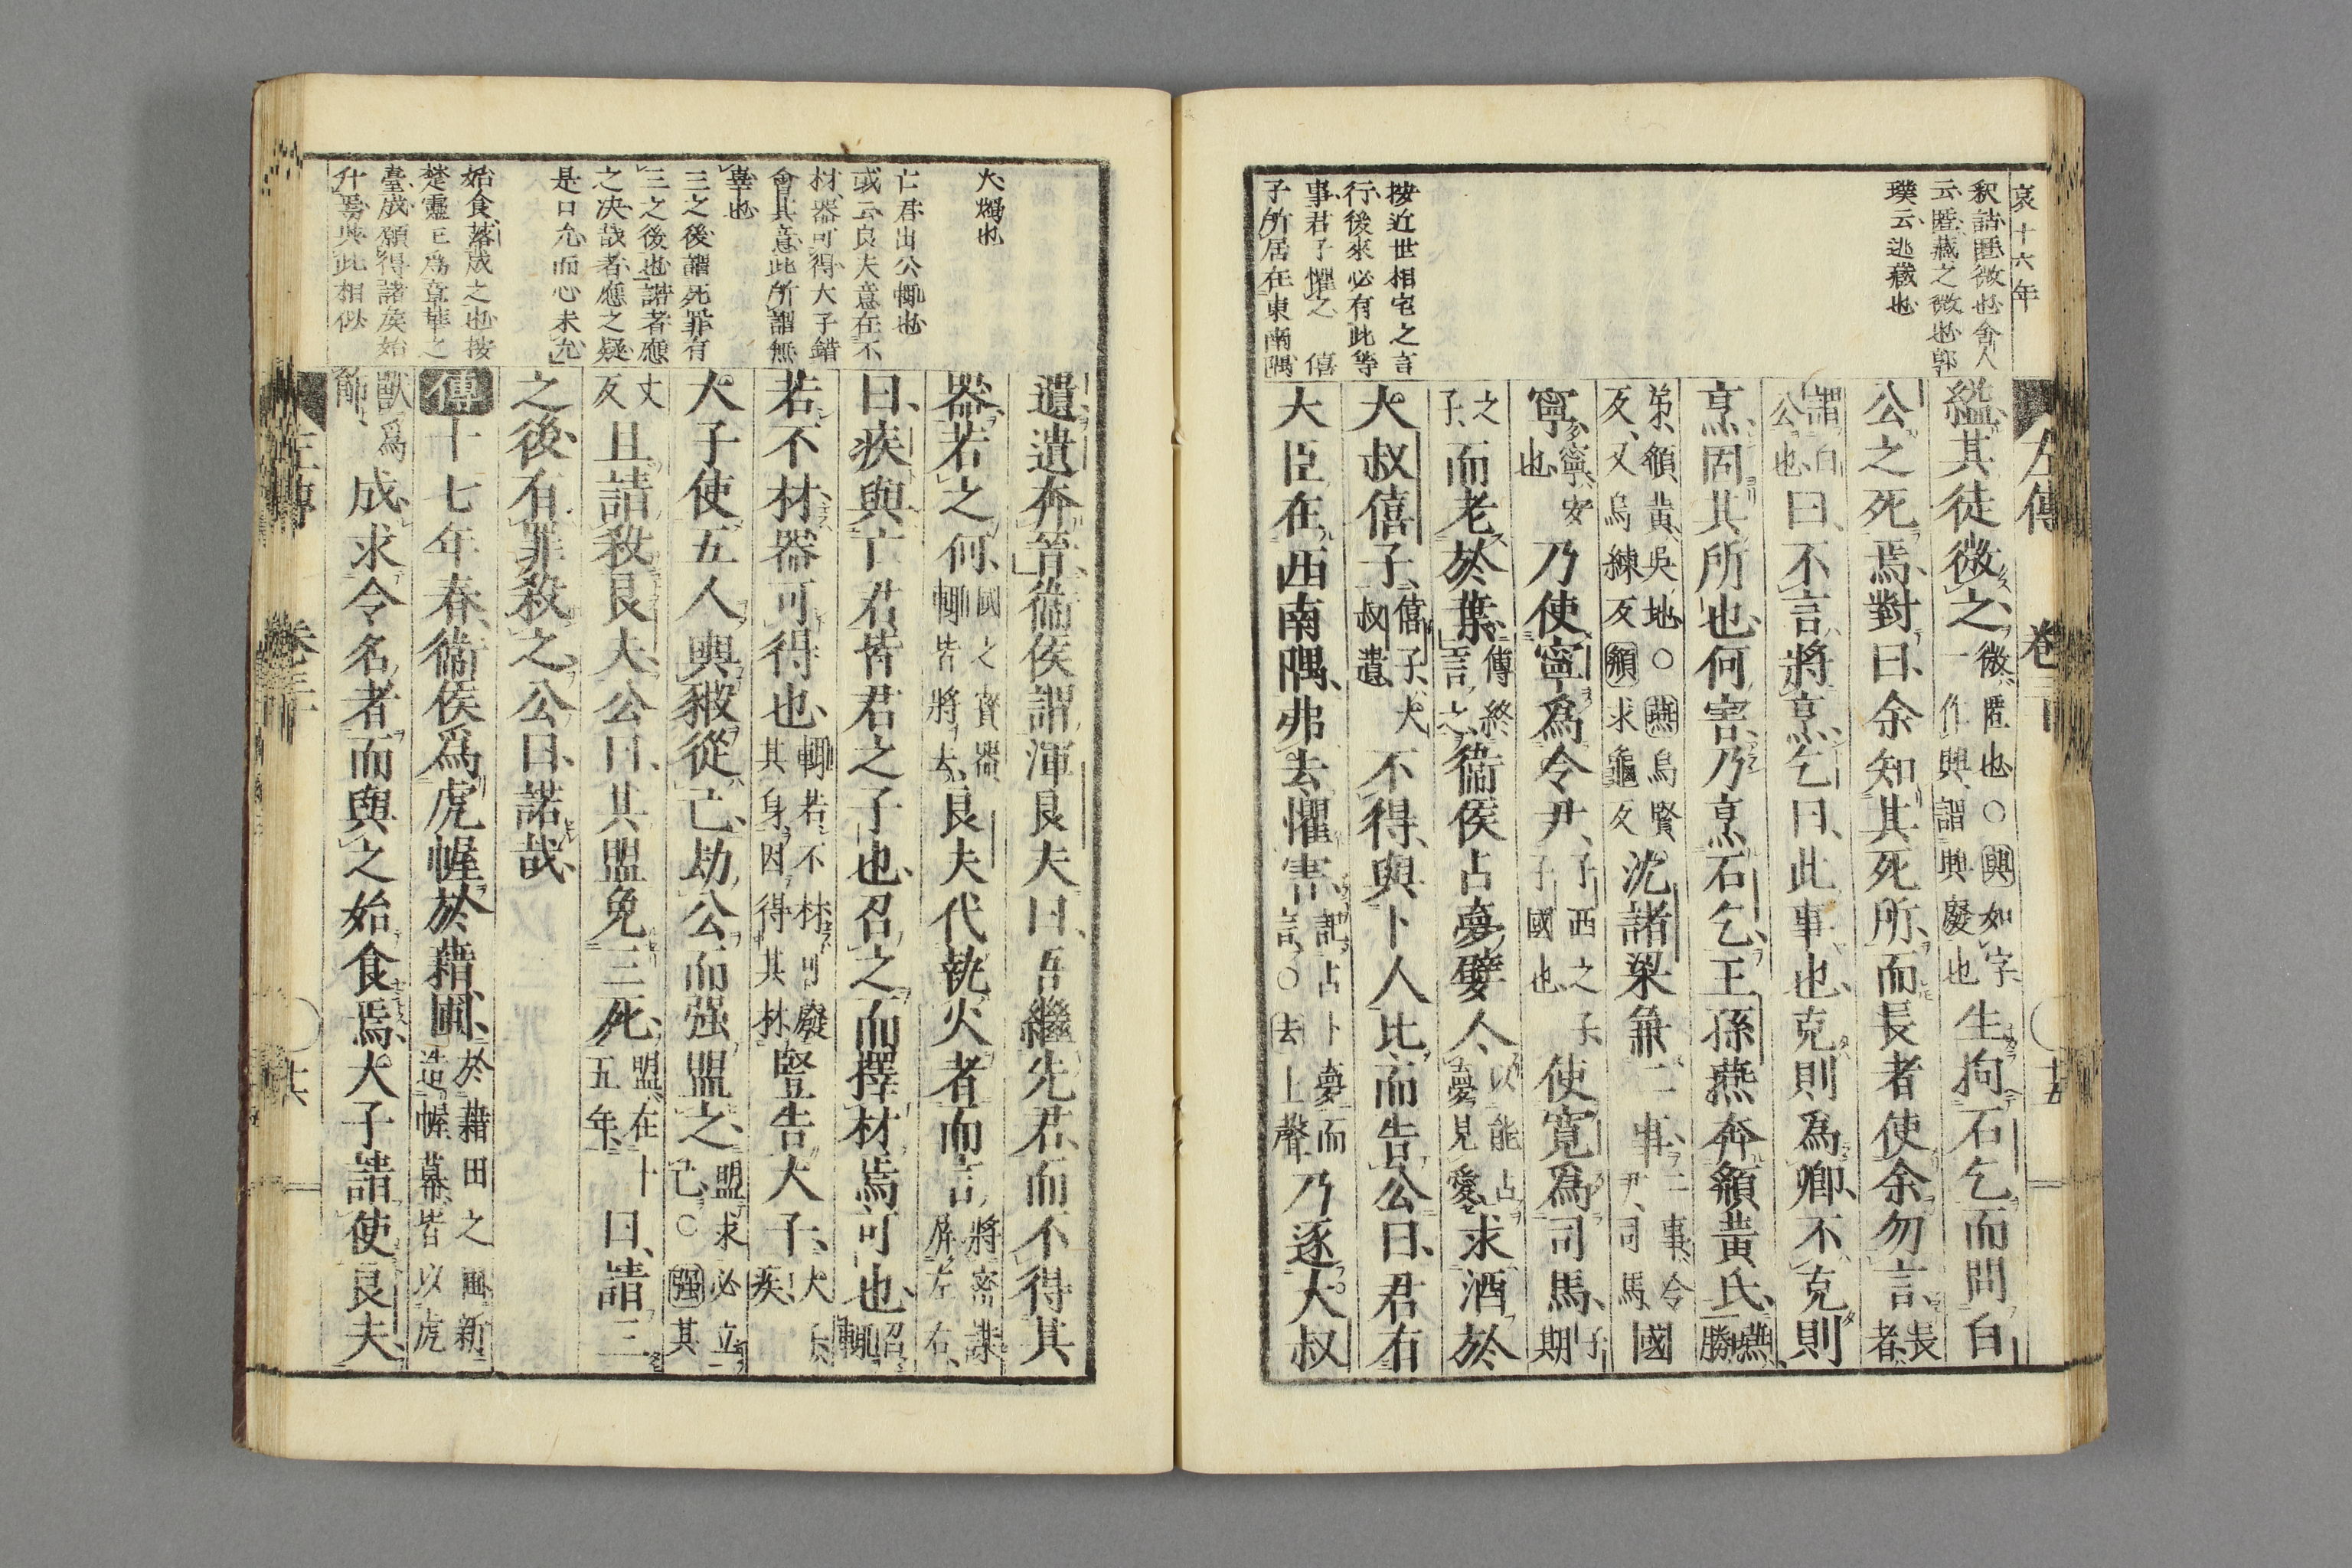 哀十六年
釈詁匿微也舎人
云匿藏之微也郭
璞云逃藏也
按近世相宅之言
行後來必有此等
事君子懼之　僖
子所居在東南隅
左傳　卷三十
十五
縊其徒微之微匿也○興如字一作興謂興廢也生拘石乞而問白
公之死焉對曰余知其死所而長者使余勿言長者
謂白公也曰不言將烹乞曰此事也克則爲卿不克則
烹固其所也何害乃烹石乞王孫燕奔頯黃氏燕勝
弟頯黃吳地○燕烏賢反又烏練反頯求龜反沈諸梁兼二事二事令尹司馬國
寧寧安也乃使寧爲令尹子西之子子國也使寬爲司馬子期
之子而老於葉傳終言之衞侯占夢嬖人以能占夢見愛求酒於
大叔僖子僖子大叔遺不得與卜人比而告公曰君有
大臣在西南隅弗去懼害託占卜夢而言○去上聲乃逐大叔
火燭也
亡君出公輒也
或云良夫意在不
材器可得大子錯
會其意此所謂無
辜也
三之後謂死罪有
三之後也諾者應
之決哉者應之疑
是口允而心未允
始食落成之也按
楚靈王爲章華之
臺成願得諸侯始
升焉與此相似
遺遺奔晉衞侯謂渾良夫曰吾繼先君而不得其
器若之何國之寶器輒皆將去良夫代執火者而言將密謀屏左右
曰疾與亡君皆君之子也召之而擇材焉可也召輒
若不材器可得也輒若不材可廢其身因得其材豎告大子大子疾
大子使五人輿豭從己劫公而强盟之盟求必立己○强其
丈反且請殺良夫公曰其盟免三死盟在十五年曰請三
之後有罪殺之公曰諾哉
傳十七年春衞侯爲虎幄於藉圃於藉田之圃新造幄幕皆以虎
獸爲飾成求令名者而與之始食焉大子請使良夫
左傳　卷三十
十六